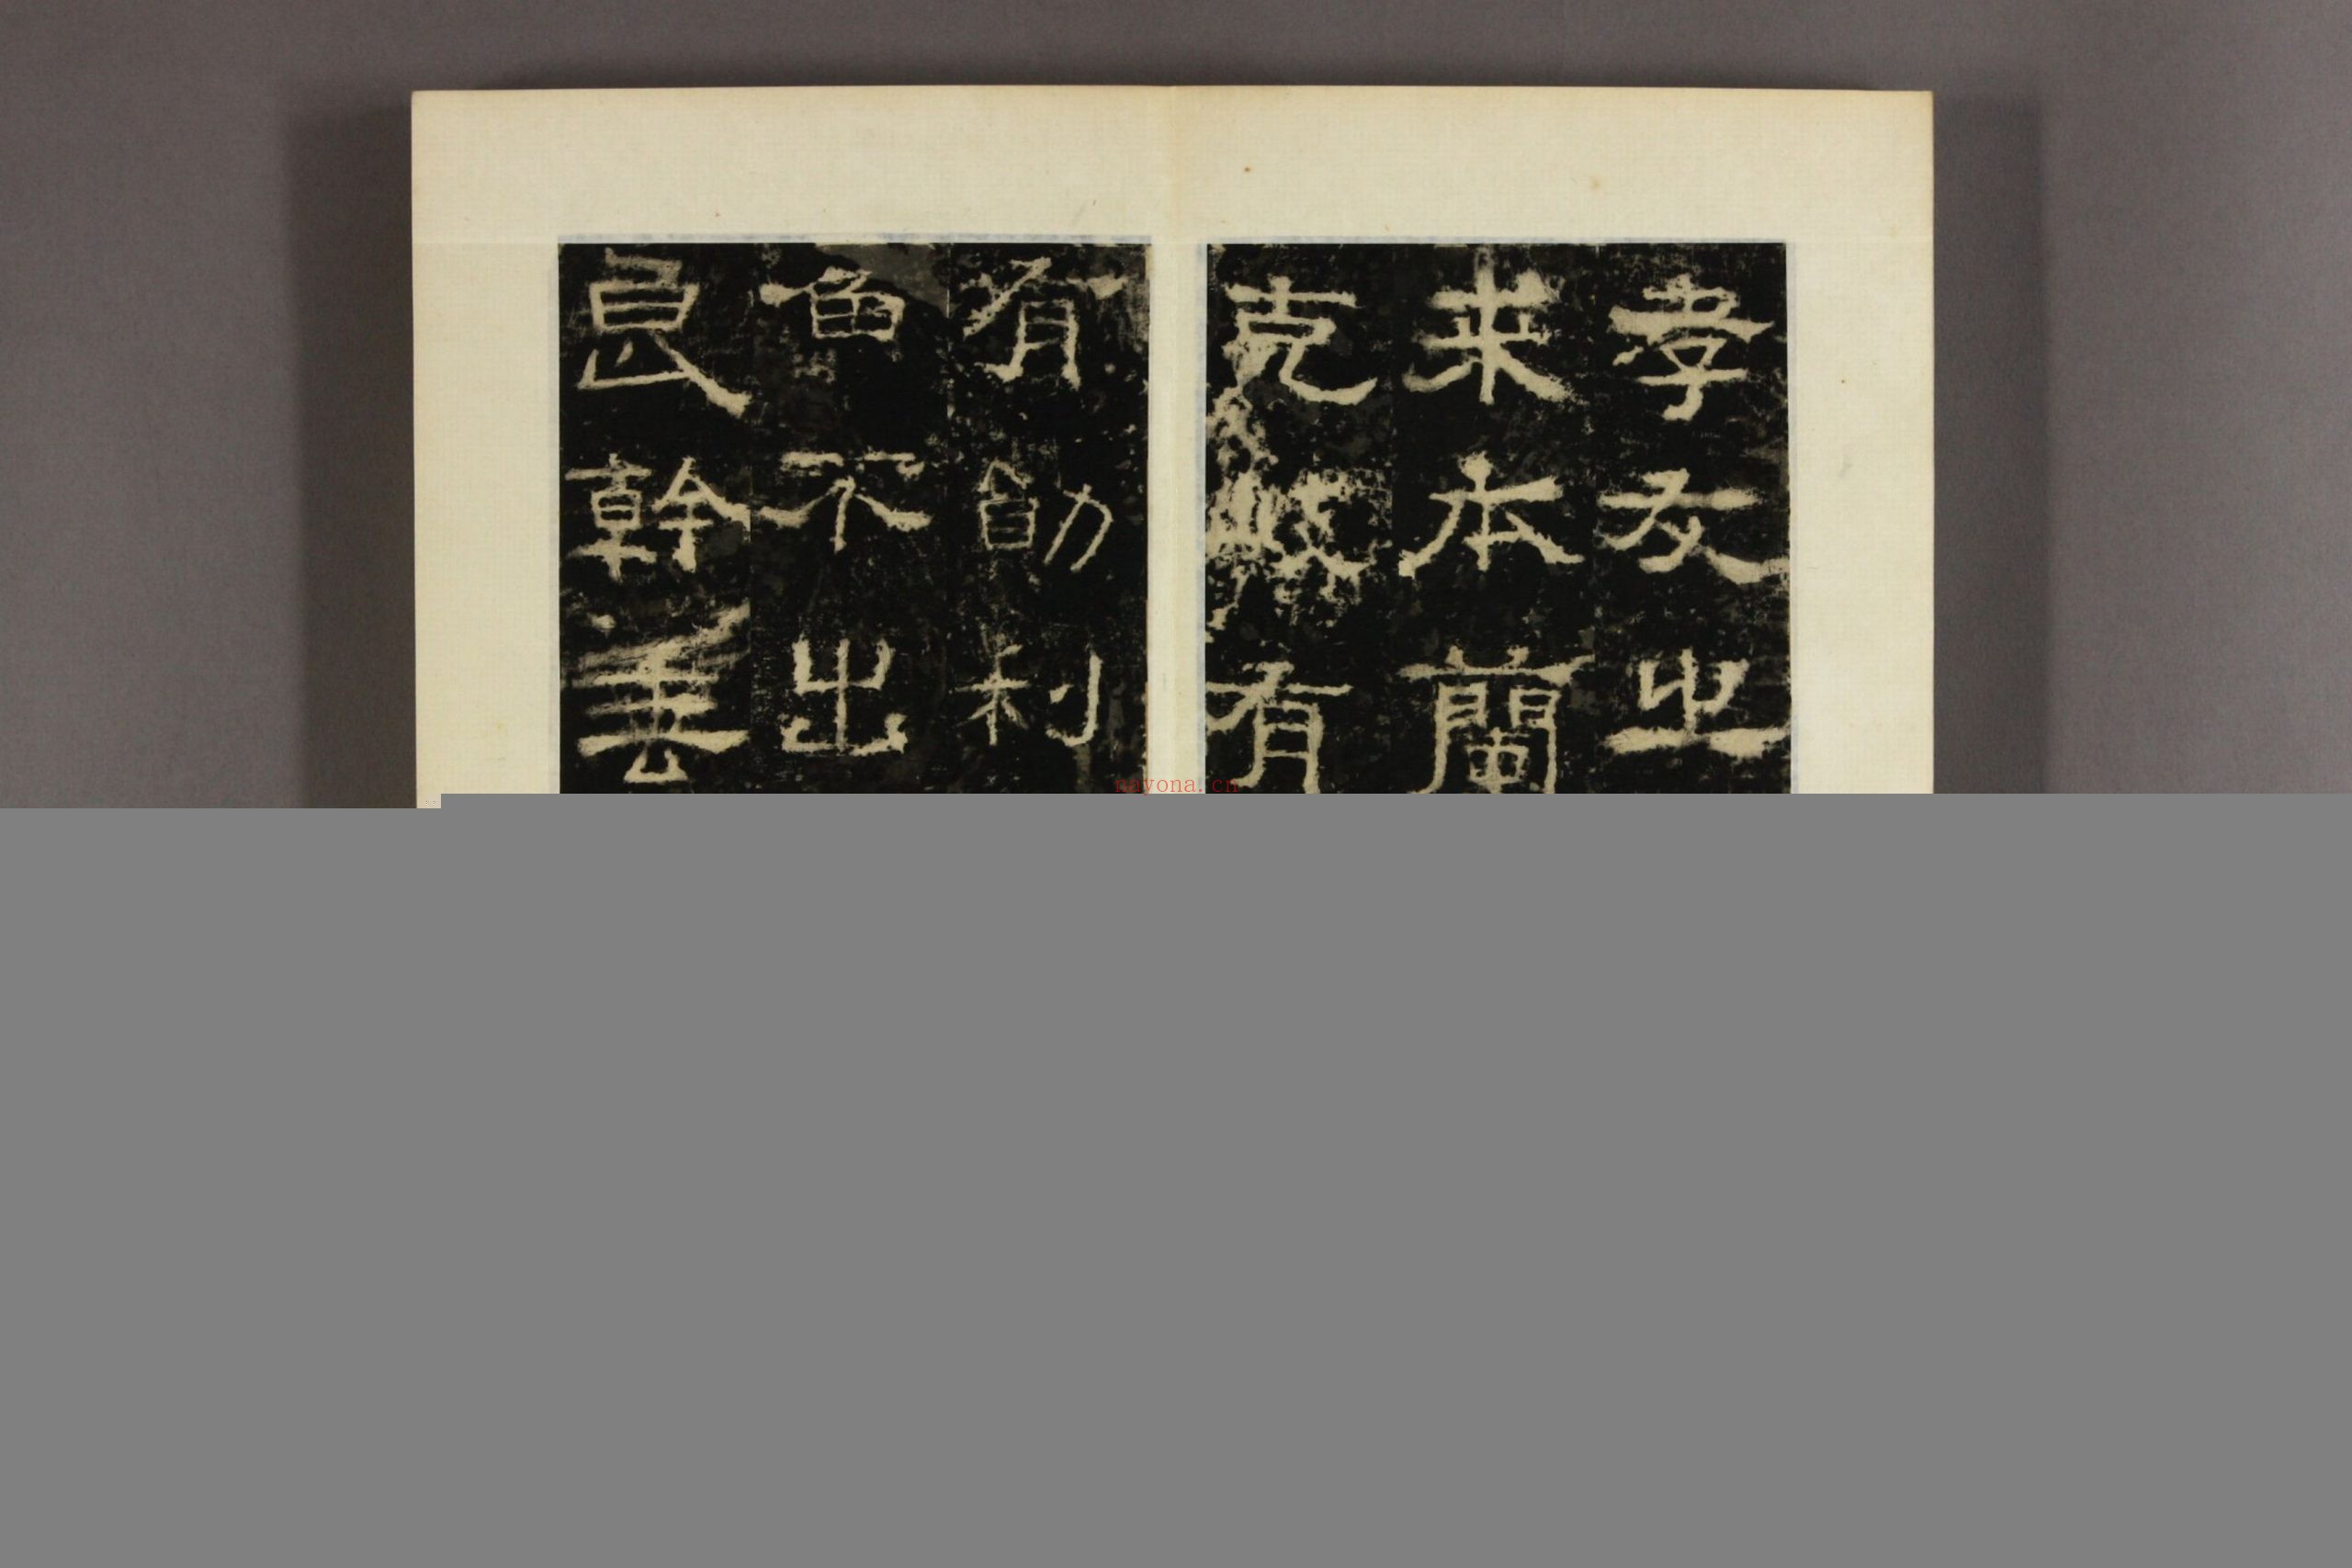 孝友之
来本蘭
克岐有
有勛利
魚不出
良幹垂
nayona.cn